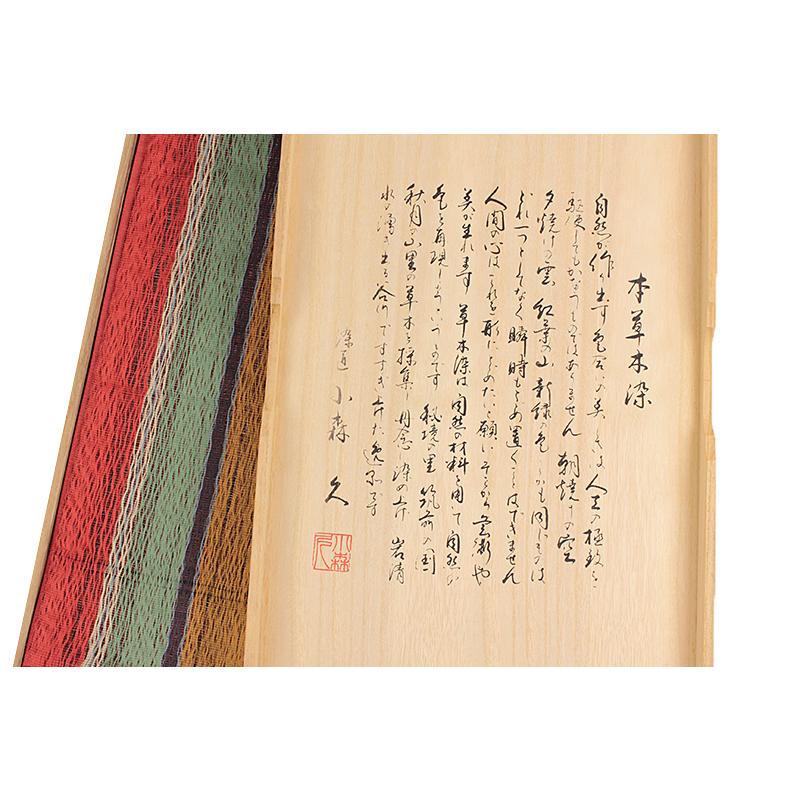 本草木染
自然が作り出す色合いの美しさは人工の極致を
駆使してもかなうものではありません 朝焼けの空
夕焼けの雲 紅葉の山 新緑の色 しかも同じものは
どれ一つとしてなく瞬時もとめ置くことはできません
人間の心はこれを形にとどめたいと願い そこから芸術や
美が生れます 草木染は自然の材料を用いて自然の
色を再現しようというものです 秘境の里 筑前の国
秋月の山里の草木を採集し丹念に染め上げ 岩清
水の湧き出る谷川ですすぎ上げた逸品です
染匠 小森 久
小森久